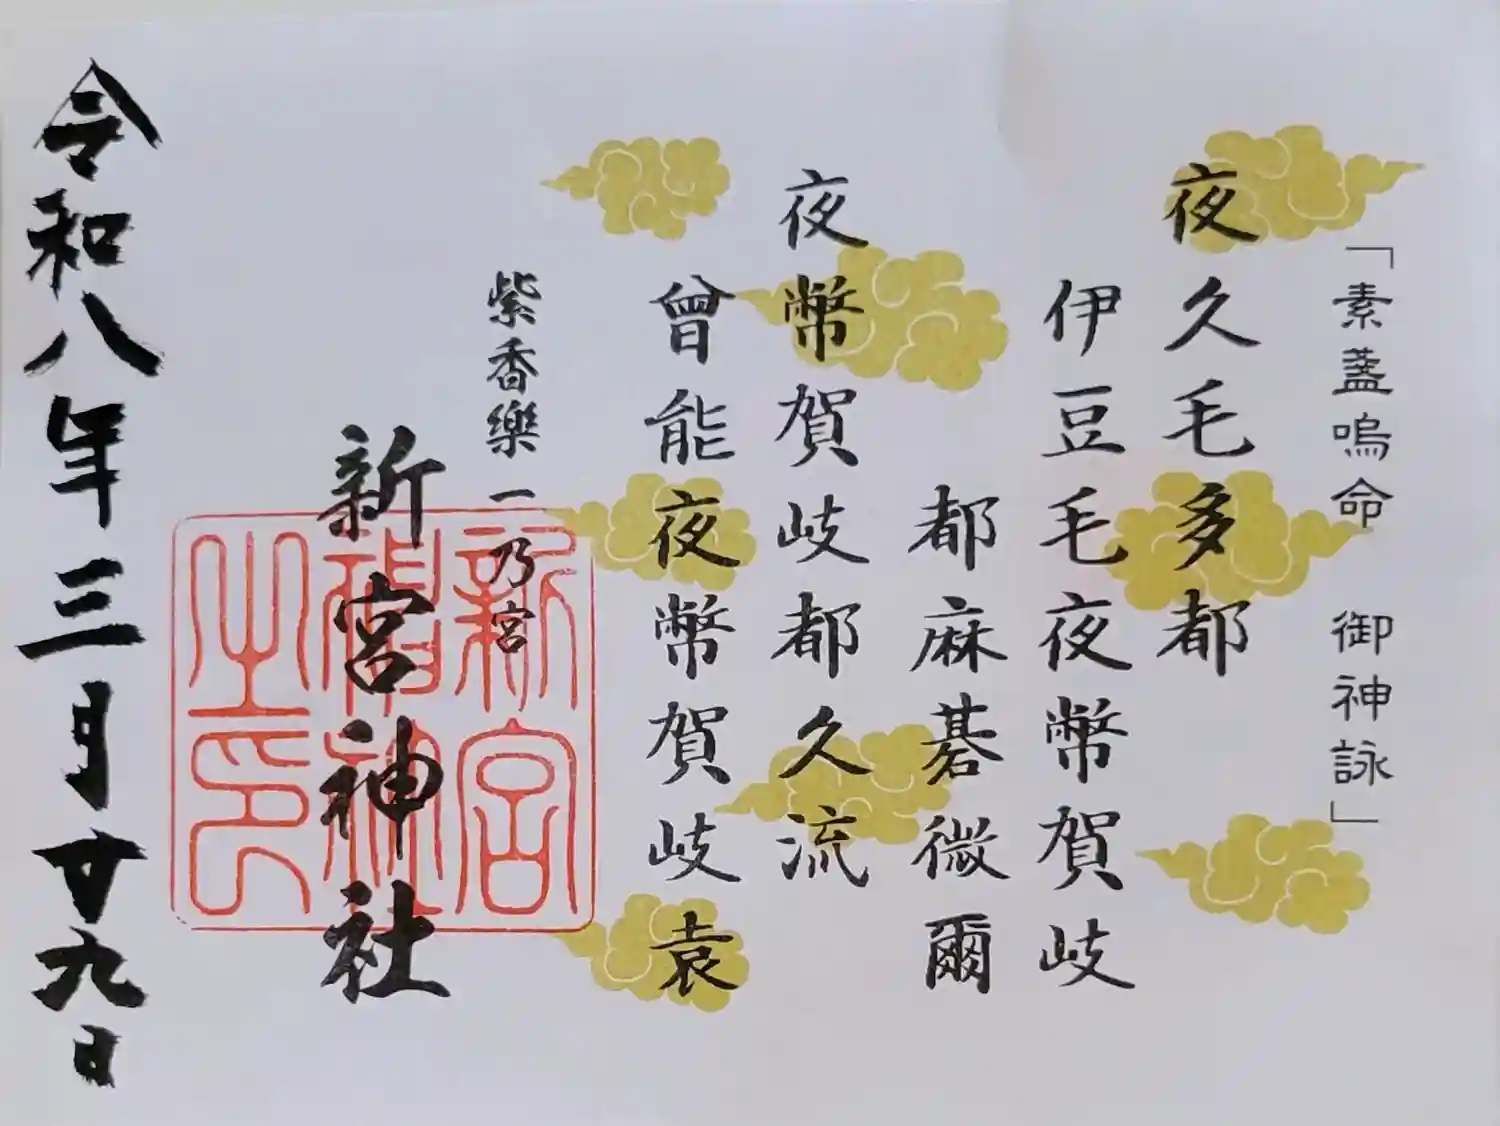 「素盞嗚命　御神詠」
夜久毛多都
伊豆毛夜幣賀岐
都麻碁微爾
夜幣賀岐都久流
曾能夜幣賀岐袁
紫香樂一乃宮
新宮神社
新宮
神社
之印
令和八年三月廿九日